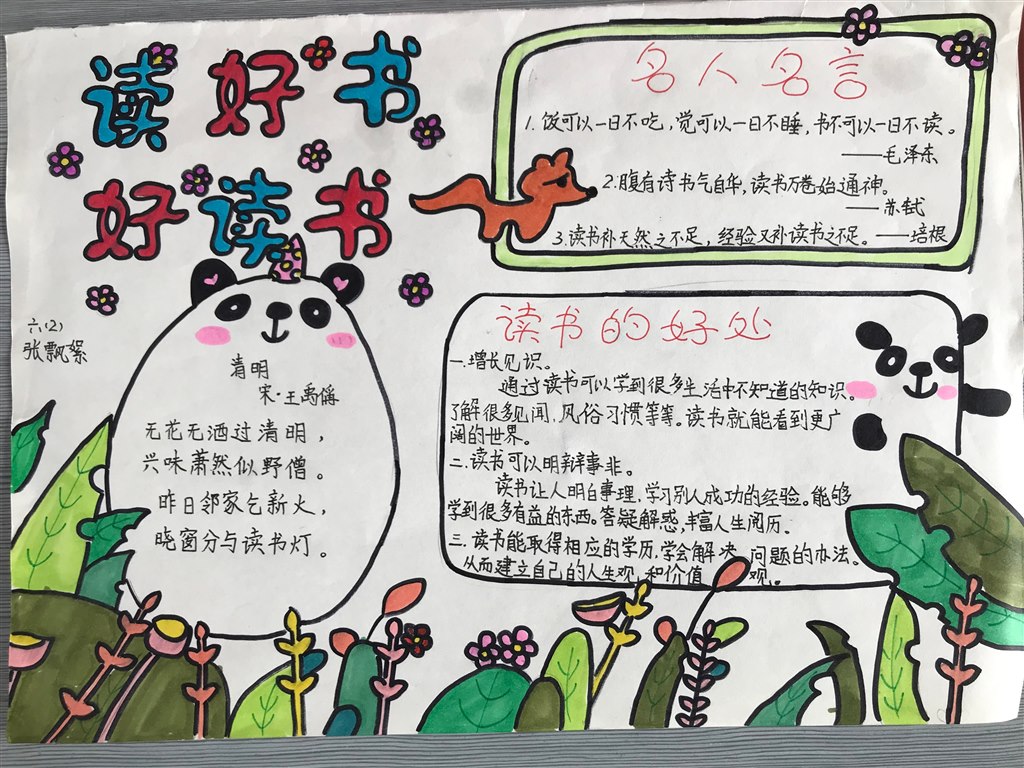 读好书
好读书
六(2)
张飘絮
清明
宋·王禹偁
无花无酒过清明，
兴味萧然似野僧。
昨日邻家乞新火，
晓窗分与读书灯。
名人名言
1.饭可以一日不吃，觉可以一日不睡，书不可以一日不读。
——毛泽东
2.腹有诗书气自华，读书万卷始通神。
——苏轼
3.读书补天然之不足，经验又补读书之不足。——培根
读书的好处
一.增长见识。
通过读书可以学到很多生活中不知道的知识。
了解很多见闻，风俗习惯等等。读书就能看到更广
阔的世界。
二.读书可以明辨事非。
读书让人明白事理，学习别人成功的经验。能够
学到很多有益的东西。答疑解惑，丰富人生阅历。
三.读书能取得相应的学历.学会解决问题的办法。
从而建立自己的人生观，和价值观。